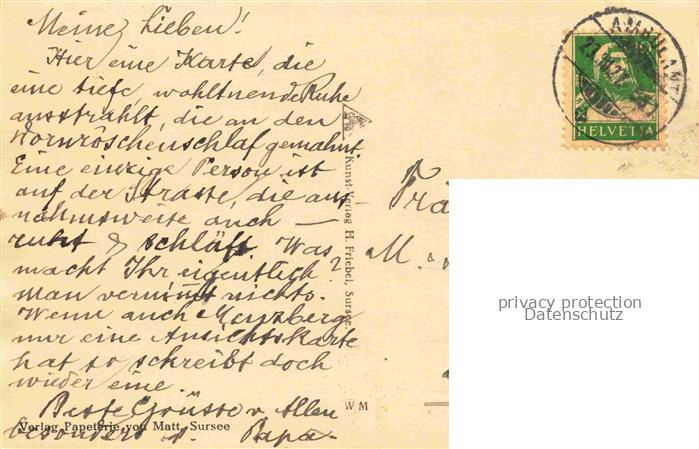 Meine Lieben!
Hier eine Karte, die
eine tiefe wohltuende Ruhe
ausstrahlt, die an den
Dornröschenschlaf gemahnt
Eine einzige Person ist
auf der Straße, die aus-
nahmsweise auch —
ruht & schläft. Was
macht Ihr eigentlich?
Man vernimt nichts.
Wenn auch
nur eine Ansichtskarte
hat so schreibt doch
wieder eine
Beste Grüsse v. Allen
besonders v. Papa.
Verlag Papeterie von Matt, Sursee
Kunst-Verlag H. Friebel, Sursee.
WM
AMBULANT
HELVETIA
M.
privacy protection
Datenschutz